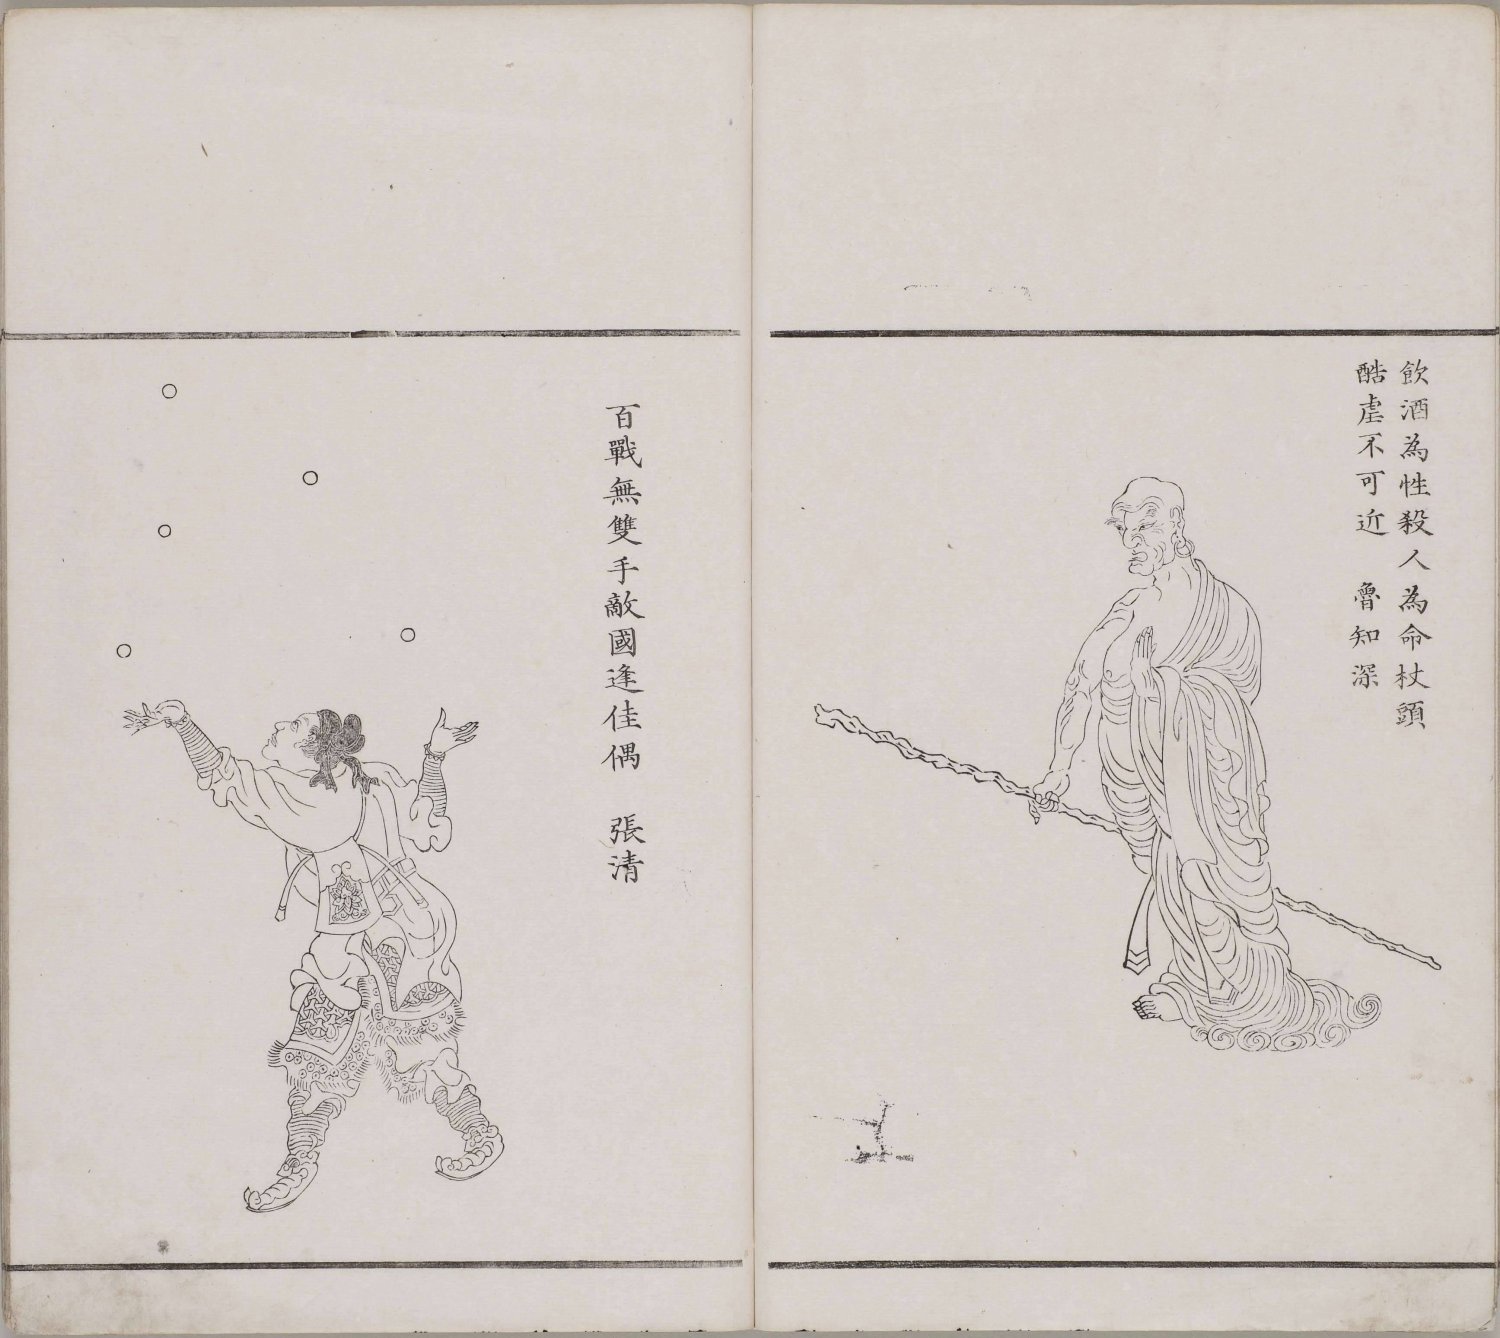 飲酒為性殺人為命杖頭
酷虐不可近　魯知深
百戰無雙手敵國逢佳偶　張清